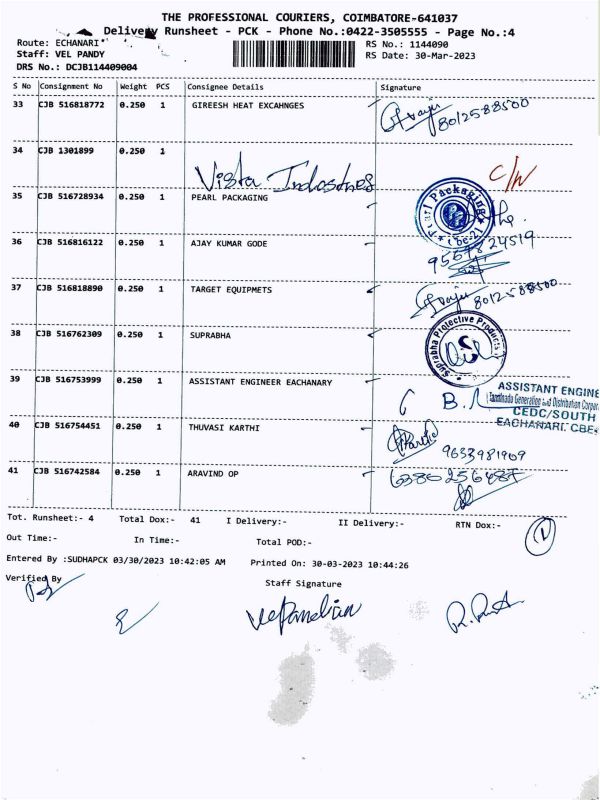 THE PROFESSIONAL COURIERS, COIMBATORE-641037
Delivery Runsheet - PCK - Phone No.:0422-3505555 - Page No.:4
Route: ECHANARI
RS No.: 1144090
Staff: VEL PANDY
RS Date: 30-Mar-2023
DRS No.: DCJB114409004
S No Consignment No Weight PCS Consignee Details Signature
33 CJB 516818772 0.250 1 GIREESH HEAT EXCAHNGES
8012588500
34 CJB 1301899 0.250 1
Vista Industries C/W
35 CJB 516728934 0.250 1 PEARL PACKAGING
Pearl Packaging
36 CJB 516816122 0.250 1 AJAY KUMAR GODE
37 CJB 516818890 0.250 1 TARGET EQUIPMETS
8012588500
38 CJB 516762309 0.250 1 SUPRABHA
Suprabha Protective Products
39 CJB 516753999 0.250 1 ASSISTANT ENGINEER EACHANARY
ASSISTANT ENGINE
Tamilnadu Generation and Distribution Corpor
CEDC/SOUTH
EACHANARI, CBE
40 CJB 516754451 0.250 1 THUVASI KARTHI
9633981909
41 CJB 516742584 0.250 1 ARAVIND OP
Tot. Runsheet:- 4 Total Dox:- 41 I Delivery:- II Delivery:- RTN Dox:-
Out Time:- In Time:- Total POD:-
Entered By :SUDHAPCK 03/30/2023 10:42:05 AM Printed On: 30-03-2023 10:44:26
Verified By Staff Signature